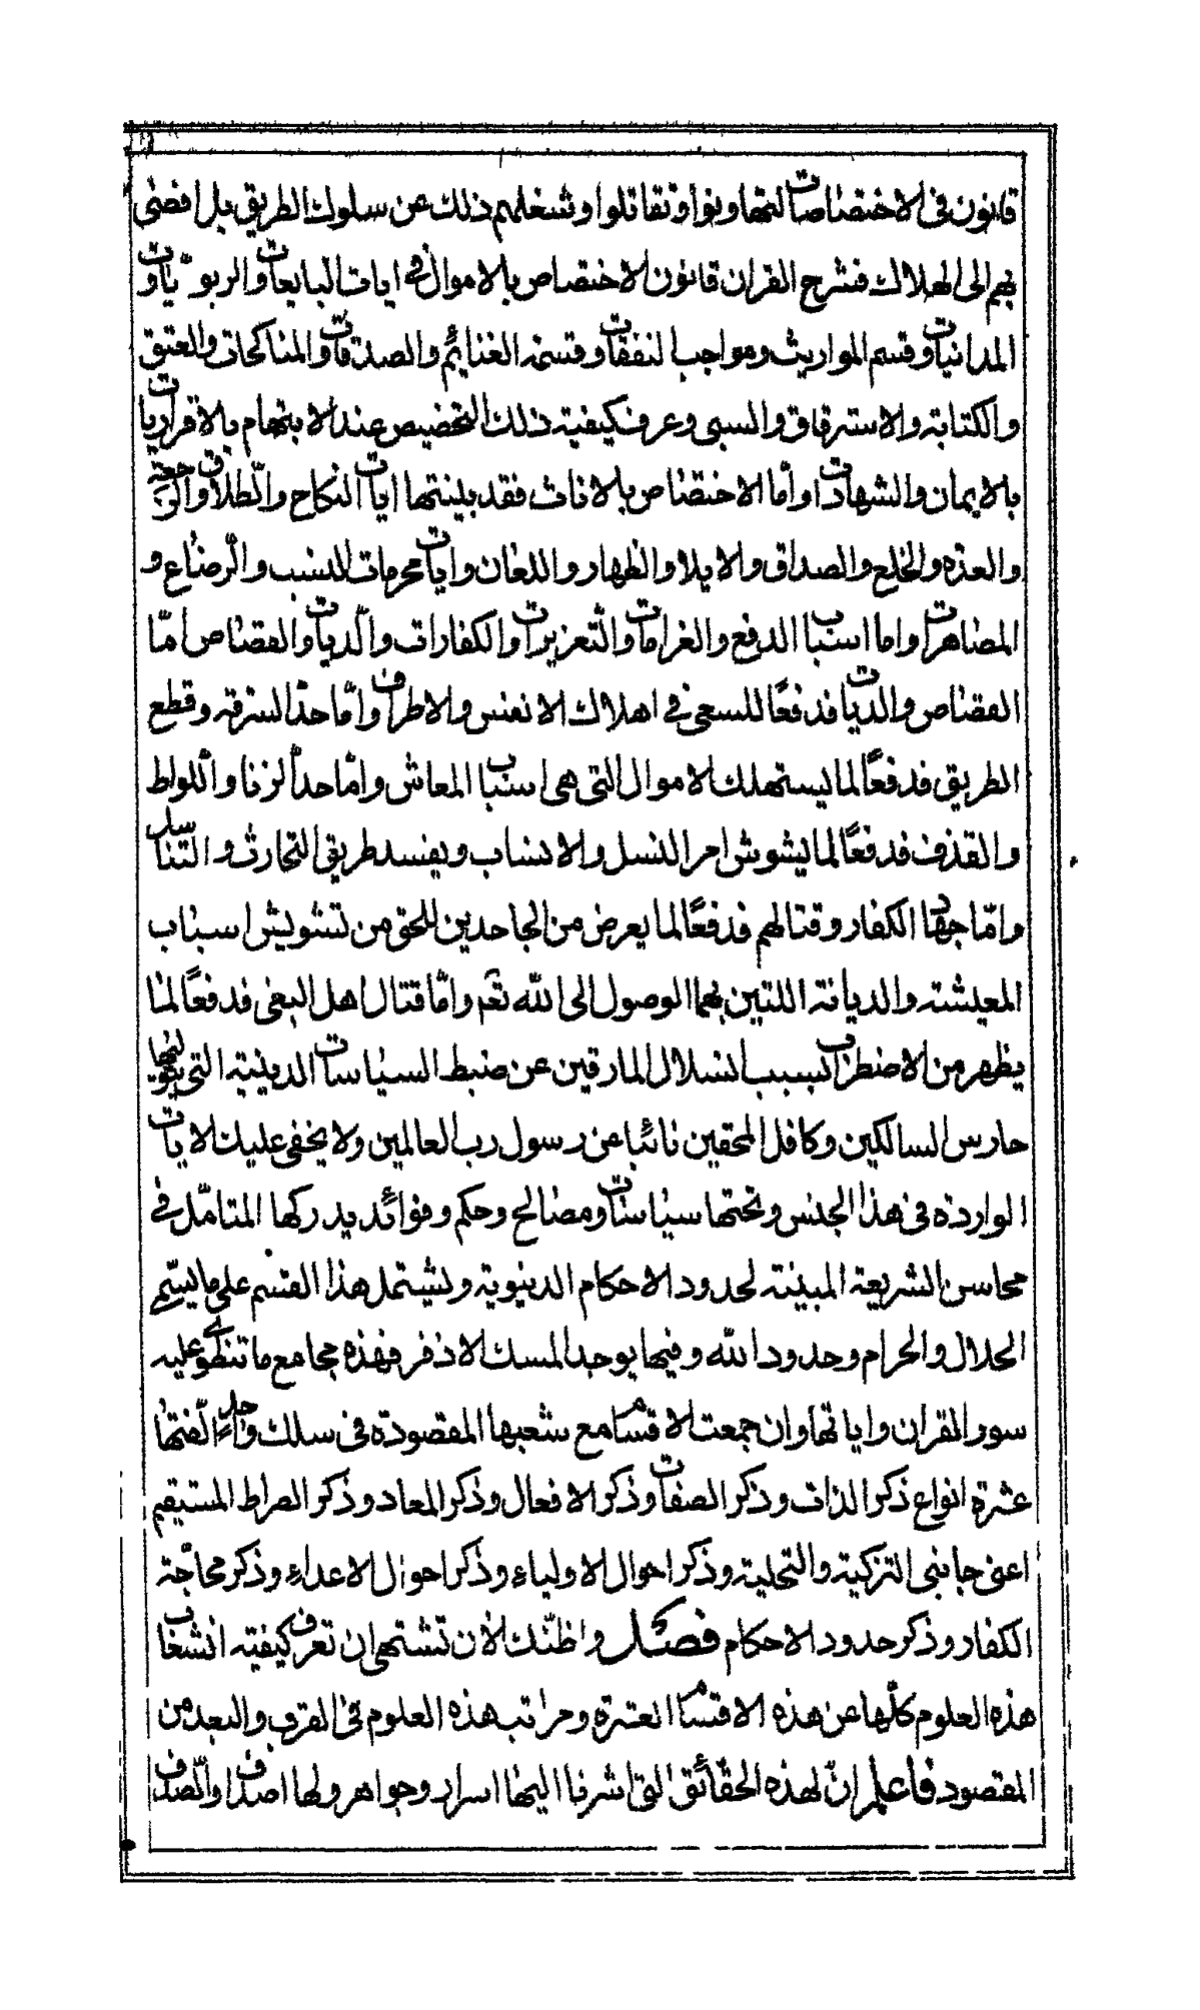 قانون فى الاختصاصات لتهاونوا وتقاتلوا وشغلهم ذلك عن سلوك الطريق بل افضى
بهم الى الهلاك فشرح القران قانون الاختصاص بالاموال فى ايات المبايعات والربويات و
المداينات وقسم المواريث ومواجب النفقات وقسمة الغنائم والصدقات والمناكحات والعتق
والكتابة والاسترقاق والسبى وعرف كيفية ذلك التخصيص عند الابتهام بالاقرارات
بالايمان والشهادات واما الاختصاص بالاناث فقد بينتها ايات النكاح والطلاق والرجعة
والعدة والخلع والصداق والايلا والظهار واللعان وايات محرمات النسب والرضاع و
المصاهرات واما اسباب الدفع والغرامات والتعزيرات والكفارات والديات والقصاص امّا
القصاص والديات فدفعًا للسعى فى اهلاك الانفس والاطراف وامّا حدّ السرقة وقطع
الطريق فدفعًا لما يستهلك الاموال التى هى اسباب المعاش وامّا حدّ الزنا واللواط
والقذف فدفعًا لما يشوش امر النسل والانساب ويفسد طريق التحارث والتناسل
وامّا جهاد الكفار وقتالهم فدفعًا لما يعرض من الجاحدين للحق من تشويش اسباب
المعيشة والديانة اللتين بهما الوصول الى الله تعم وامّا قتال اهل البغى فدفعًا لما
يظهر من الاضطراب بسبب انسلال المارقين عن ضبط السياسات الدينية التى يتوليها
حارس السالكين وكافل المحقين نائبًا عن رسول رب العالمين ولا يخفى عليك الايات
الواردة فى هذا الجنس وتحتها سياسات ومصالح وحكم وفوائد يدركها المتامّل فى
محاسن الشريعة المبينة لحدود الاحكام الدنيوية ويشتمل هذا القسم على ما يسمّى
الحلال والحرام وحدود الله وفيها يوجد المسك الاذفر فهذه مجامع ما تنطوى عليه
سور القران واياتها وان جمعت الاقسام مع شعبها المقصودة فى سلك واحد الفتها
عشرة انواع ذكر الذات وذكر الصفات وذكر الافعال وذكر المعاد وذكر الصراط المستقيم
اعنى جانبى التزكية والتحلية وذكر احوال الاولياء وذكر احوال الاعداء وذكر محاجّة
الكفار وذكر حدود الاحكام فصل واظنّك الان تشتهى ان تعرف كيفية انشعاب
هذه العلوم كلّها عن هذه الاقسام العشرة ومراتب هذه العلوم فى القرب والبعد من
المقصود فاعلم انّ لهذه الحقائق التى اشرنا اليها اسرار وجواهر ولها اصداف والصدف